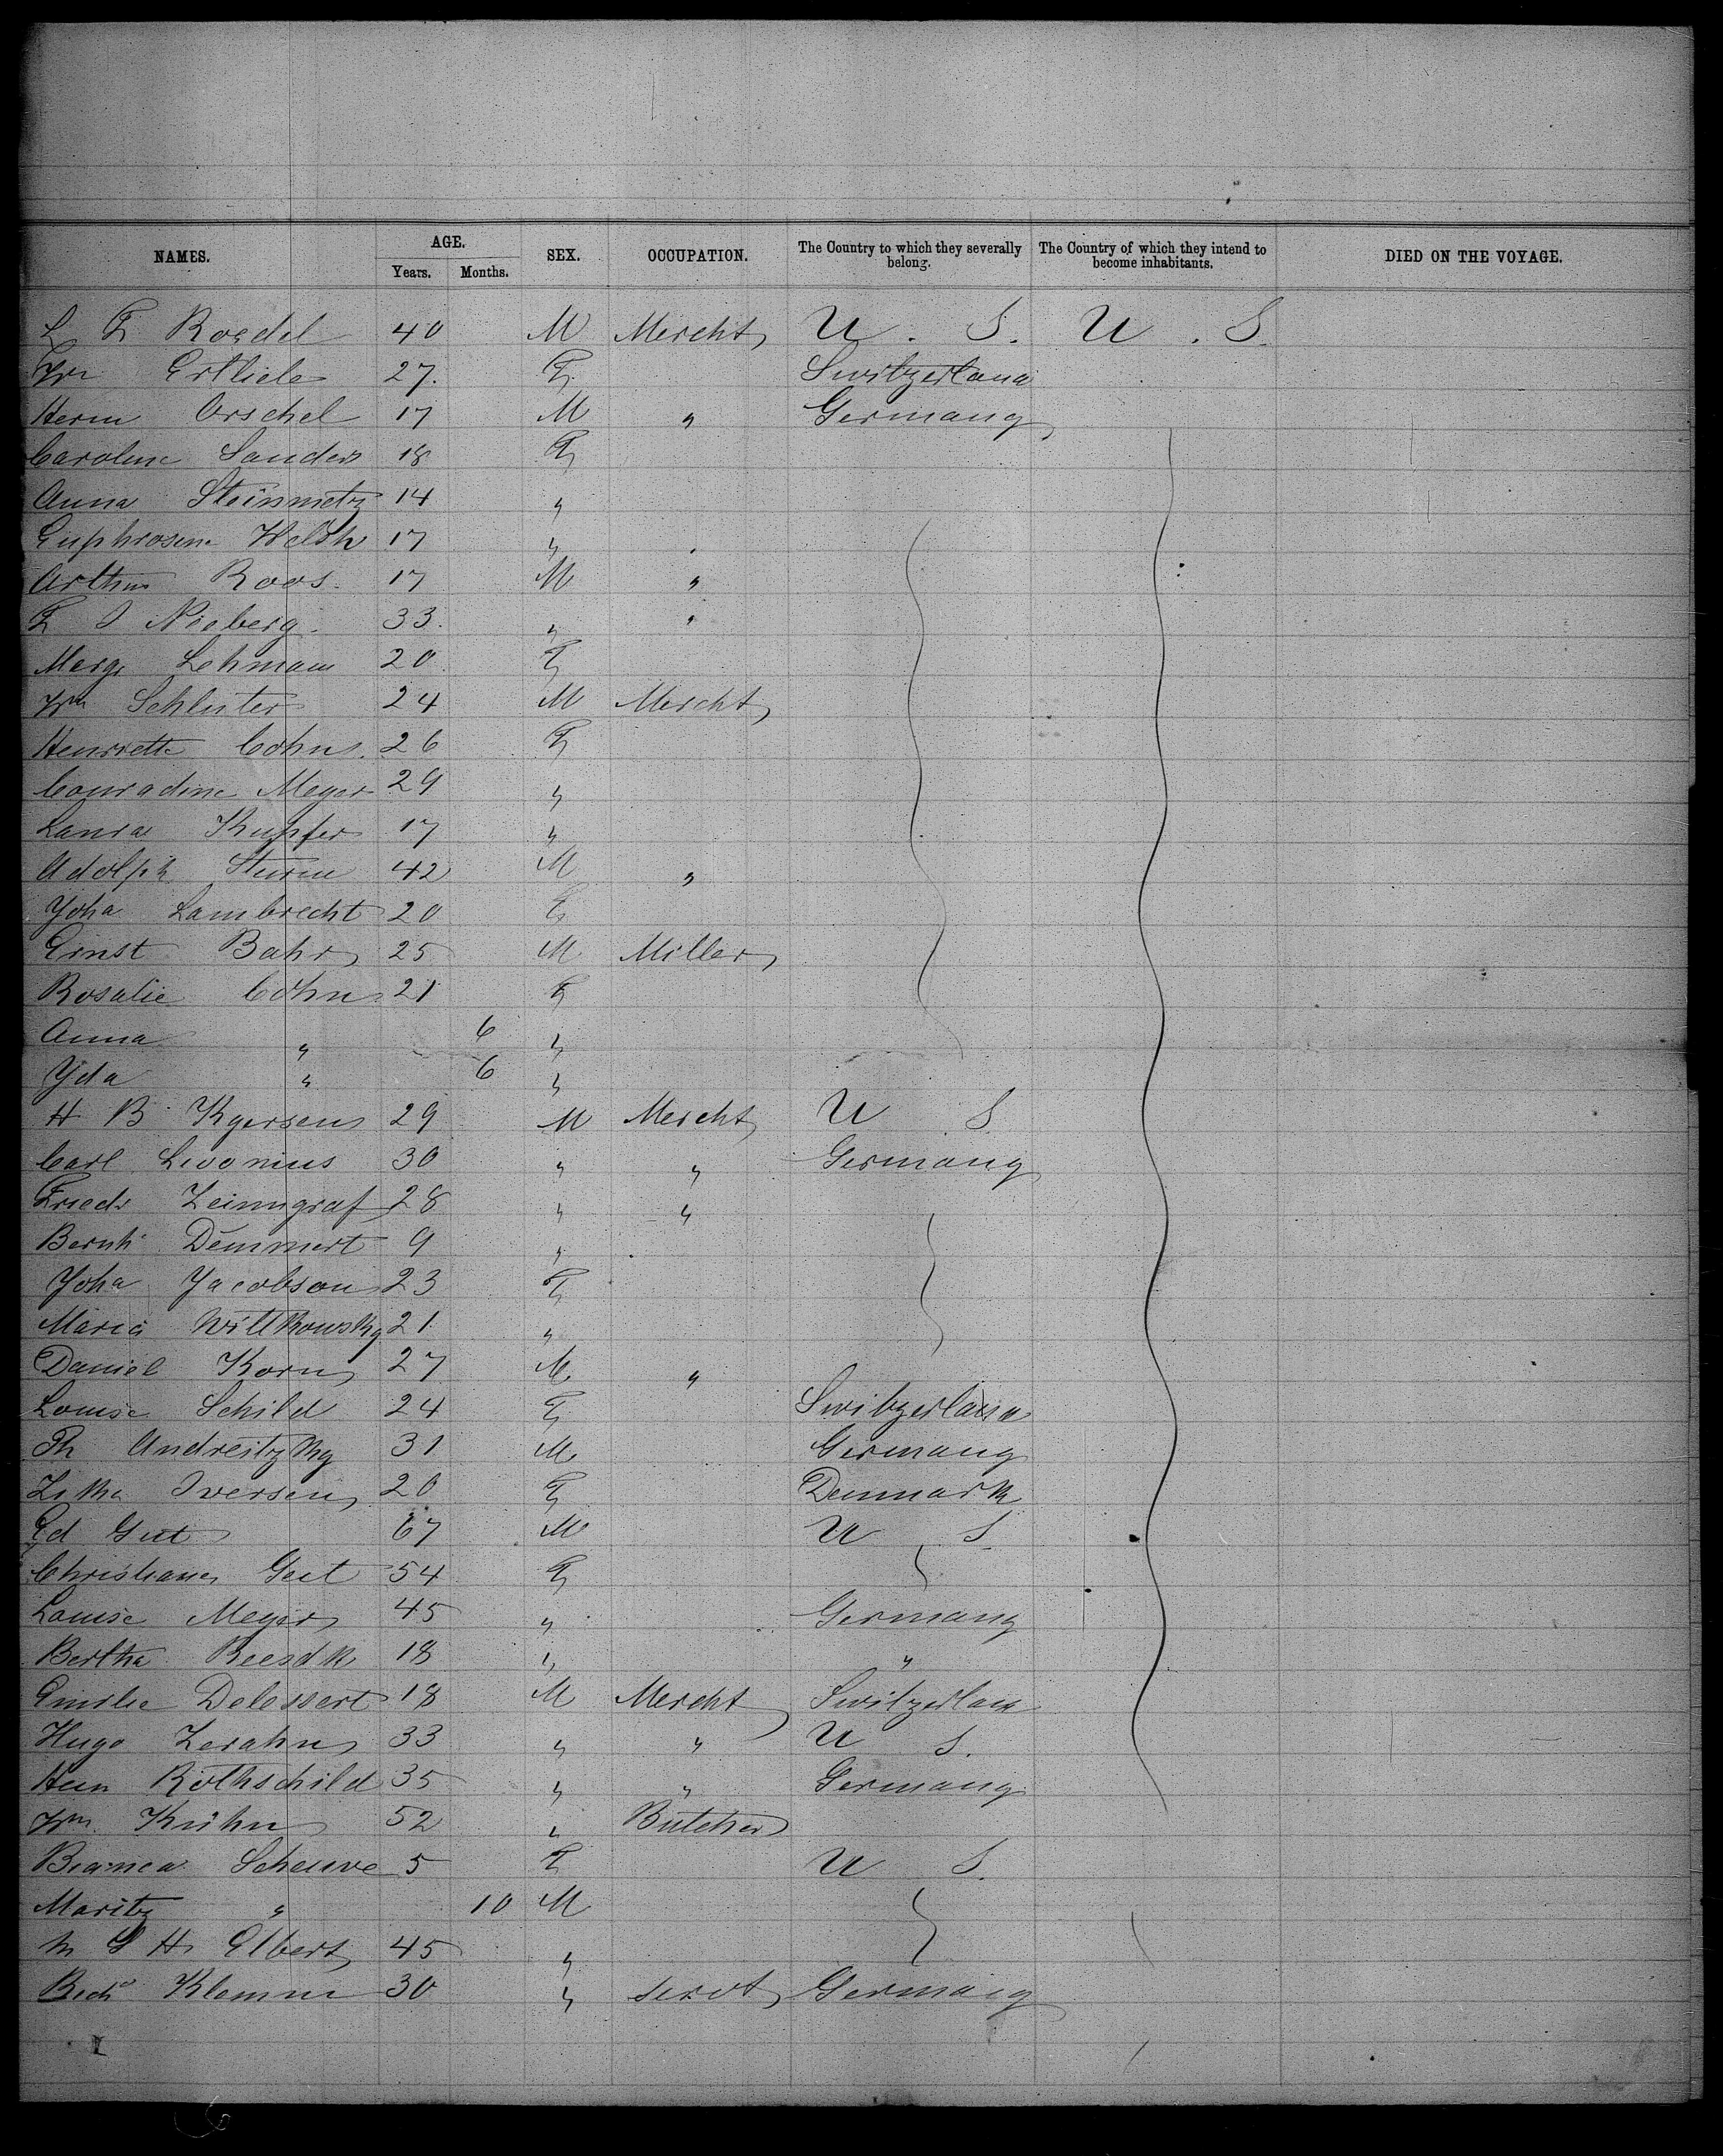 NAMES. AGE. SEX. OCCUPATION. The Country to which they severally belong. The Country of which they intend to become inhabitants. DIED ON THE VOYAGE.
Years. Months.
L F Roedel 40 M Mercht U . S. U . S.
27. F Switzerland
Herm Orschel 17 M " Germany
Caroline Sanders 18 F
Anna Steinmetz 14 "
Euphrosine 17 "
Arthur Roos 17 M "
F J Nieberg. 33. " "
Marg. Lehmann 20 F
Wm Schluter 24 M Mercht
Henriette Cohn 26 F
Conradine Meyer 29 "
Laura Kupfer 17 "
Adolph Sturm 42 M "
Yoha Lambrecht 20 F
Ernst Bahr 25 M Miller
Rosalie Cohn 21 F
Anna " 6 "
Yda " 6 "
H B Kyersen 29 M Mercht U S
Carl Livonius 30 " " Germany
Friedr Zeinngraf 28 " "
Bernh Demmert 9 "
Yoha Yacobson 23 F
Maria Willkowsky 21 "
Daniel Korn 27 M "
Louise Schild 24 F Switzerland
Th Andreitzky 31 M Germany
Iversen 20 F Denmark
Ed Gut 67 M U S
Christiane Gut 54 F
Louise Meyer 45 " Germany
Bertha 18 " "
Emilie Delessert 18 M Mercht Switzerlan
Hugo Zerahn 33 " " U S.
Rothschild 35 " " Germany
Wm. Krühn 52 " Butcher
Bianca Scheuve 5 F U S.
Moritz " 10 M
45 "
Elbert
Klemm 30 " servt Germany